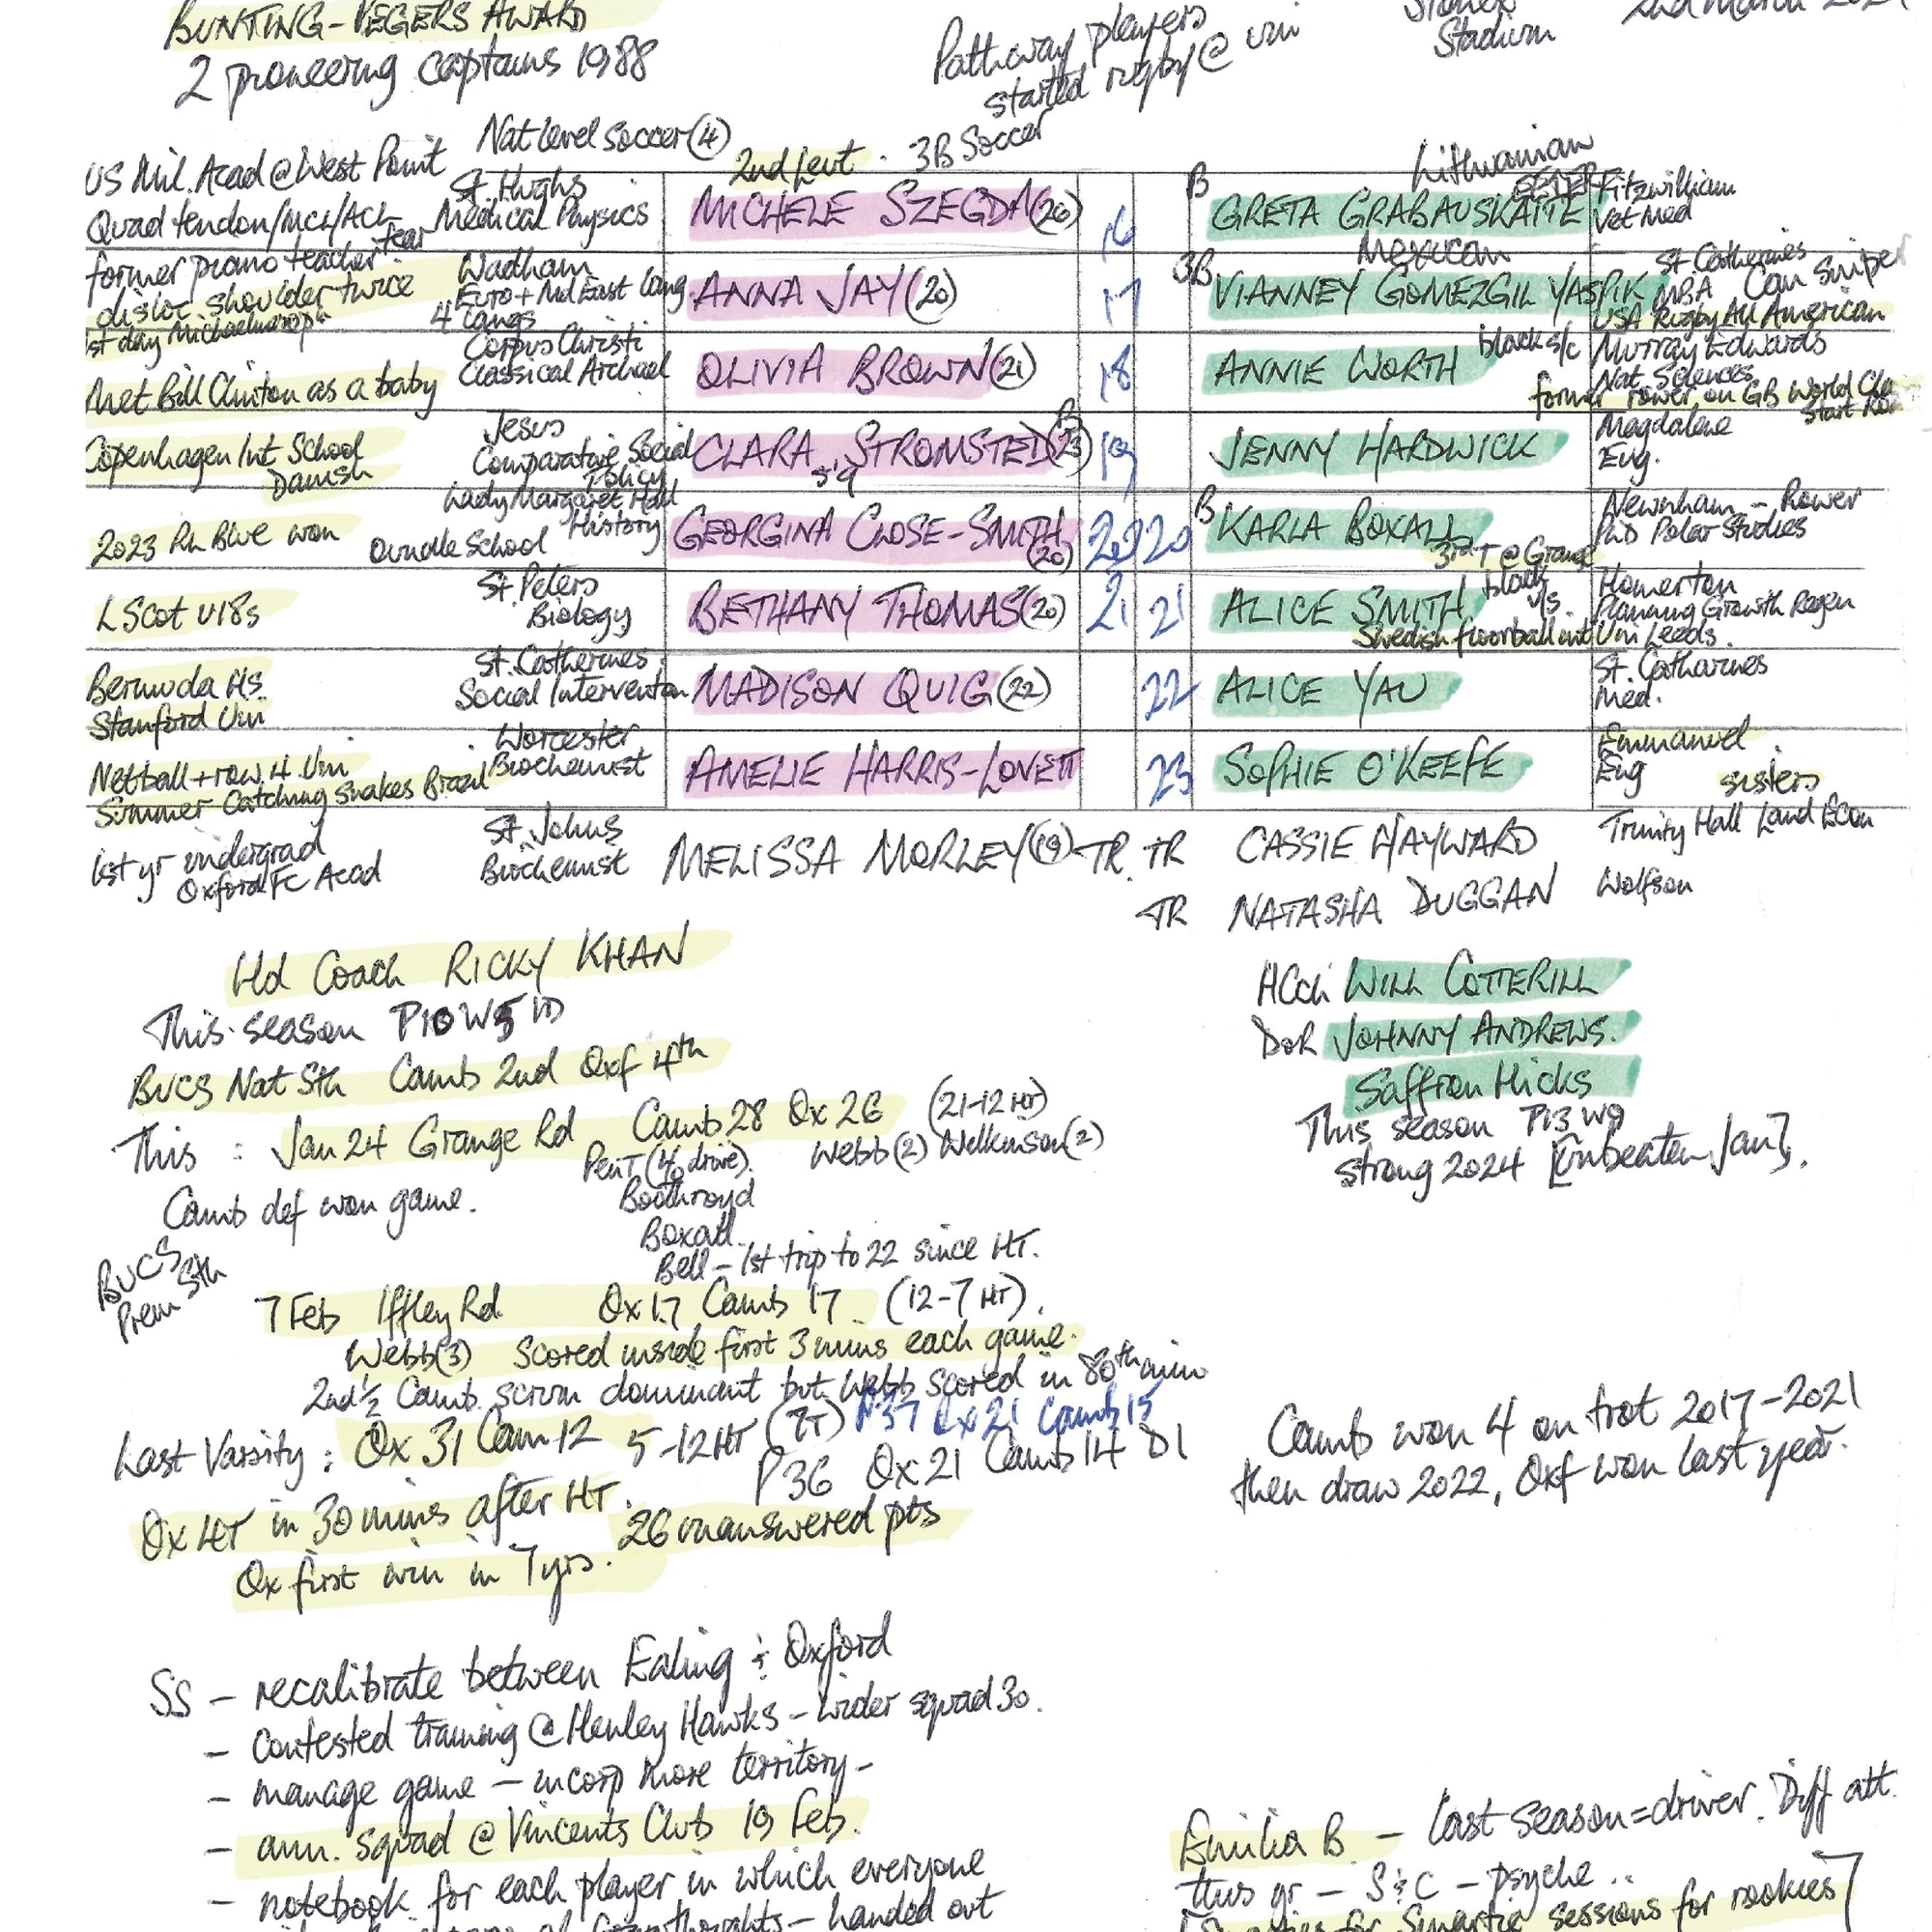 BUNTING-
AWARD
2 pioneering captains 1988
Pathway players
started rugby @ uni
Stadium
2nd March
US Mil. Acad @ West Point
Nat level soccer (4)
2nd Leut . 3B Soccer
Lithuanian
Quad tendon/MCL/ACL tear
St. Hughs
Medical Physics
MICHELE SZEGDA (26)
16
B
GRETA GRABAUSKAITE
Fitzwilliam
Vet Med
former piano teacher
disloc shoulder twice
1st day Michaelmas
Wadham
Euro + Mid East Lang
4 langs
ANNA JAY (20)
17
3B
Mexican
VIANNEY GOMEZGIL YASPIK
St Catherines
MBA
Sniper
USA Rugby All American
Met Bill Clinton as a baby
Corpus Christi
Classical Archael
OLIVIA BROWN (21)
18
ANNIE WORTH
black s/c
Murray Edwards
Nat. Sciences
former rower on GB World
start
Copenhagen Int School
Danish
Jesus
Comparative Social
Policy
B
CLARA STROMSTED (23)
19
JENNY HARDWICK
Magdalene
Eng.
2023 Rn Blue won
Lady Margaret Hall
History
Oundle School
GEORGINA CLOSE-SMITH (20)
20 20
B
KARLA BOXALL
3rd T @ Grange
Newnham - Rower
PhD Polar Studies
LScot U18s
St. Peters
Biology
BETHANY THOMAS (20)
21 21
ALICE SMITH
black
Swedish floorball int
Homerton
Planning Growth Regen
Uni Leeds.
Bermuda Hs.
Stanford Uni
St. Catherines
Social Intervention
MADISON QUIG (22)
22
ALICE YAU
St. Catharines
Med.
Netball + row 4 Uni
Summer Catching Snakes Brazil
Worcester
Biochemist
AMELIE HARRIS-LOVETT
23
SOPHIE O'KEEFE
Emmanuel
Eng
sisters
1st yr undergrad
Oxford FC Acad
St. Johns
Biochemist
MELISSA MORLEY (19) TR.
TR CASSIE HAYWARD
Trinity Hall Land Econ
TR NATASHA DUGGAN
Wolfson
Hd Coach RICKY KHAN
This season P10 W5 1D
HCch WILL COTTERILL
DoR JOHNNY ANDREWS.
Saffron Hicks
This season P13 W9
strong 2024 [unbeaten Jan].
BUCS Nat Sth Camb 2nd Oxf 4th
This : Jan 24 Grange Rd Camb 28 Ox 26 (21-12 HT)
PenT (4/0 drive). Webb (2) Wilkinson (2)
Camb def won game.
Boothroyd
Boxall
Bell - 1st trip to 22 since HT.
BUCS
Prem Sth
7 Feb Iffley Rd Ox 17 Camb 17 (12-7 HT).
Webb (3) Scored inside first 3 mins each game.
2nd ½ Camb. scrum dominant but Webb scored in 80th min
Last Varsity : Ox 31 Cam 12 5-12 HT (7T) P37 Ox 21 Camb 15
P36 Ox 21 Camb 14 D1
Ox 4T in 30 mins after HT. 26 unanswered pts
Ox first win in 7 yrs.
Camb won 4 on trot 2017-2021
then draw 2022, Oxf won last year.
SS - recalibrate between Ealing & Oxford
- contested training @ Henley Hawks - wider squad 30.
- manage game - incorp more territory -
- ann. squad @ Vincents Club 19 Feb.
- notebook for each player in which everyone
thoughts - handed out
Emilia B - last season = driver. Diff att.
this yr - S & C - psyche ..
for Synartix sessions for rookies]